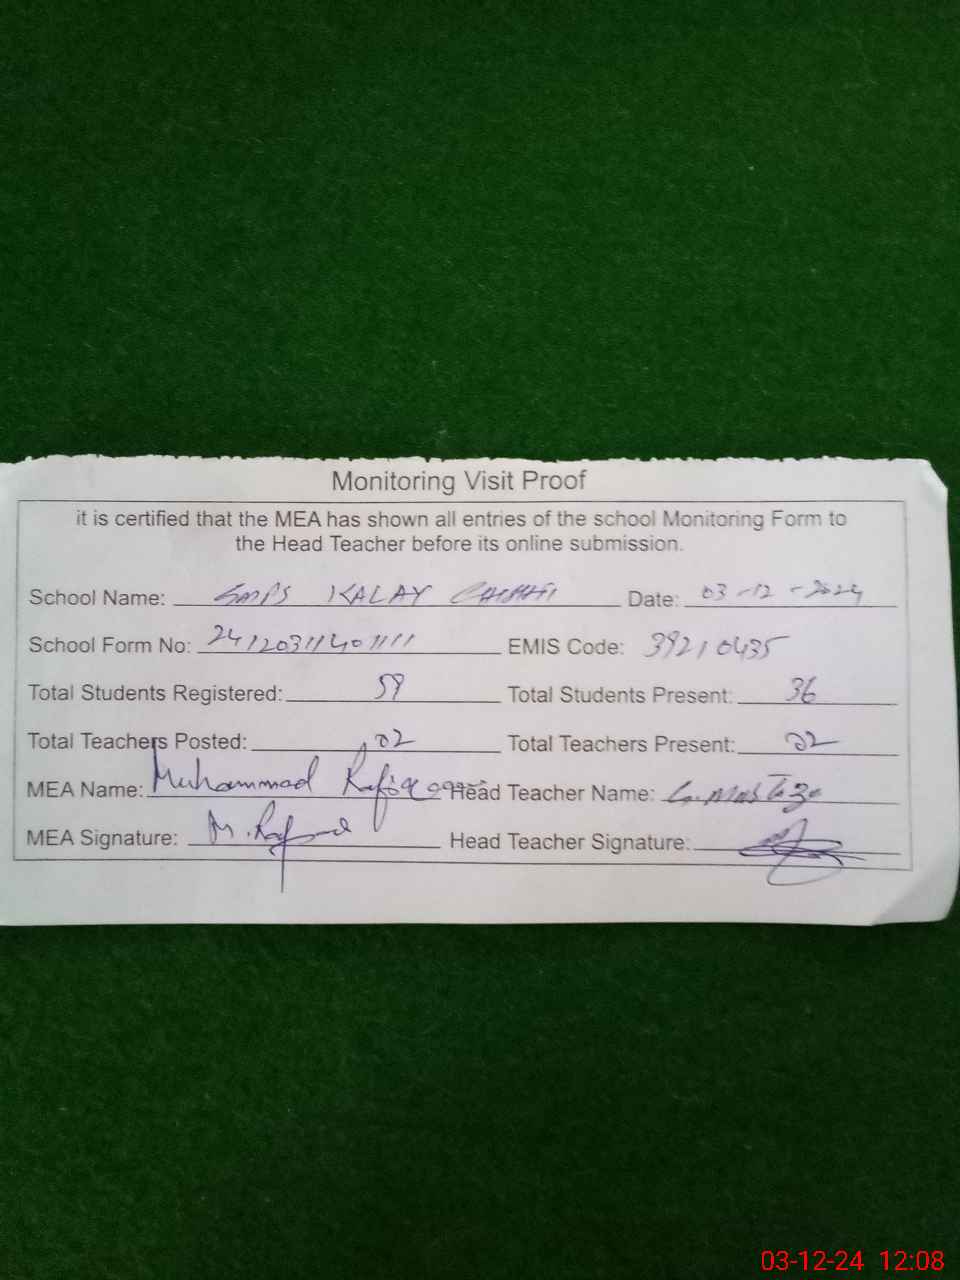 Monitoring Visit Proof
it is certified that the MEA has shown all entries of the school Monitoring Form to
the Head Teacher before its online submission.
School Name: GMPS KALAY CHISHTI Date: 03-12-2024
School Form No: 24120311401111 EMIS Code: 39210435
Total Students Registered: 59 Total Students Present: 36
Total Teachers Posted: 02 Total Teachers Present: 02
MEA Name: Muhammad Rafiq Head Teacher Name: G. Mustafa
MEA Signature: Head Teacher Signature:
03-12-24 12:08